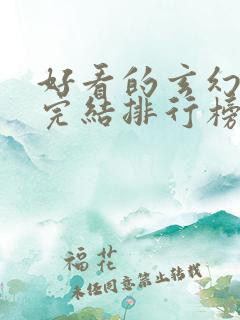 好看的玄幻
完结排行榜
福花
未经同意禁止转载